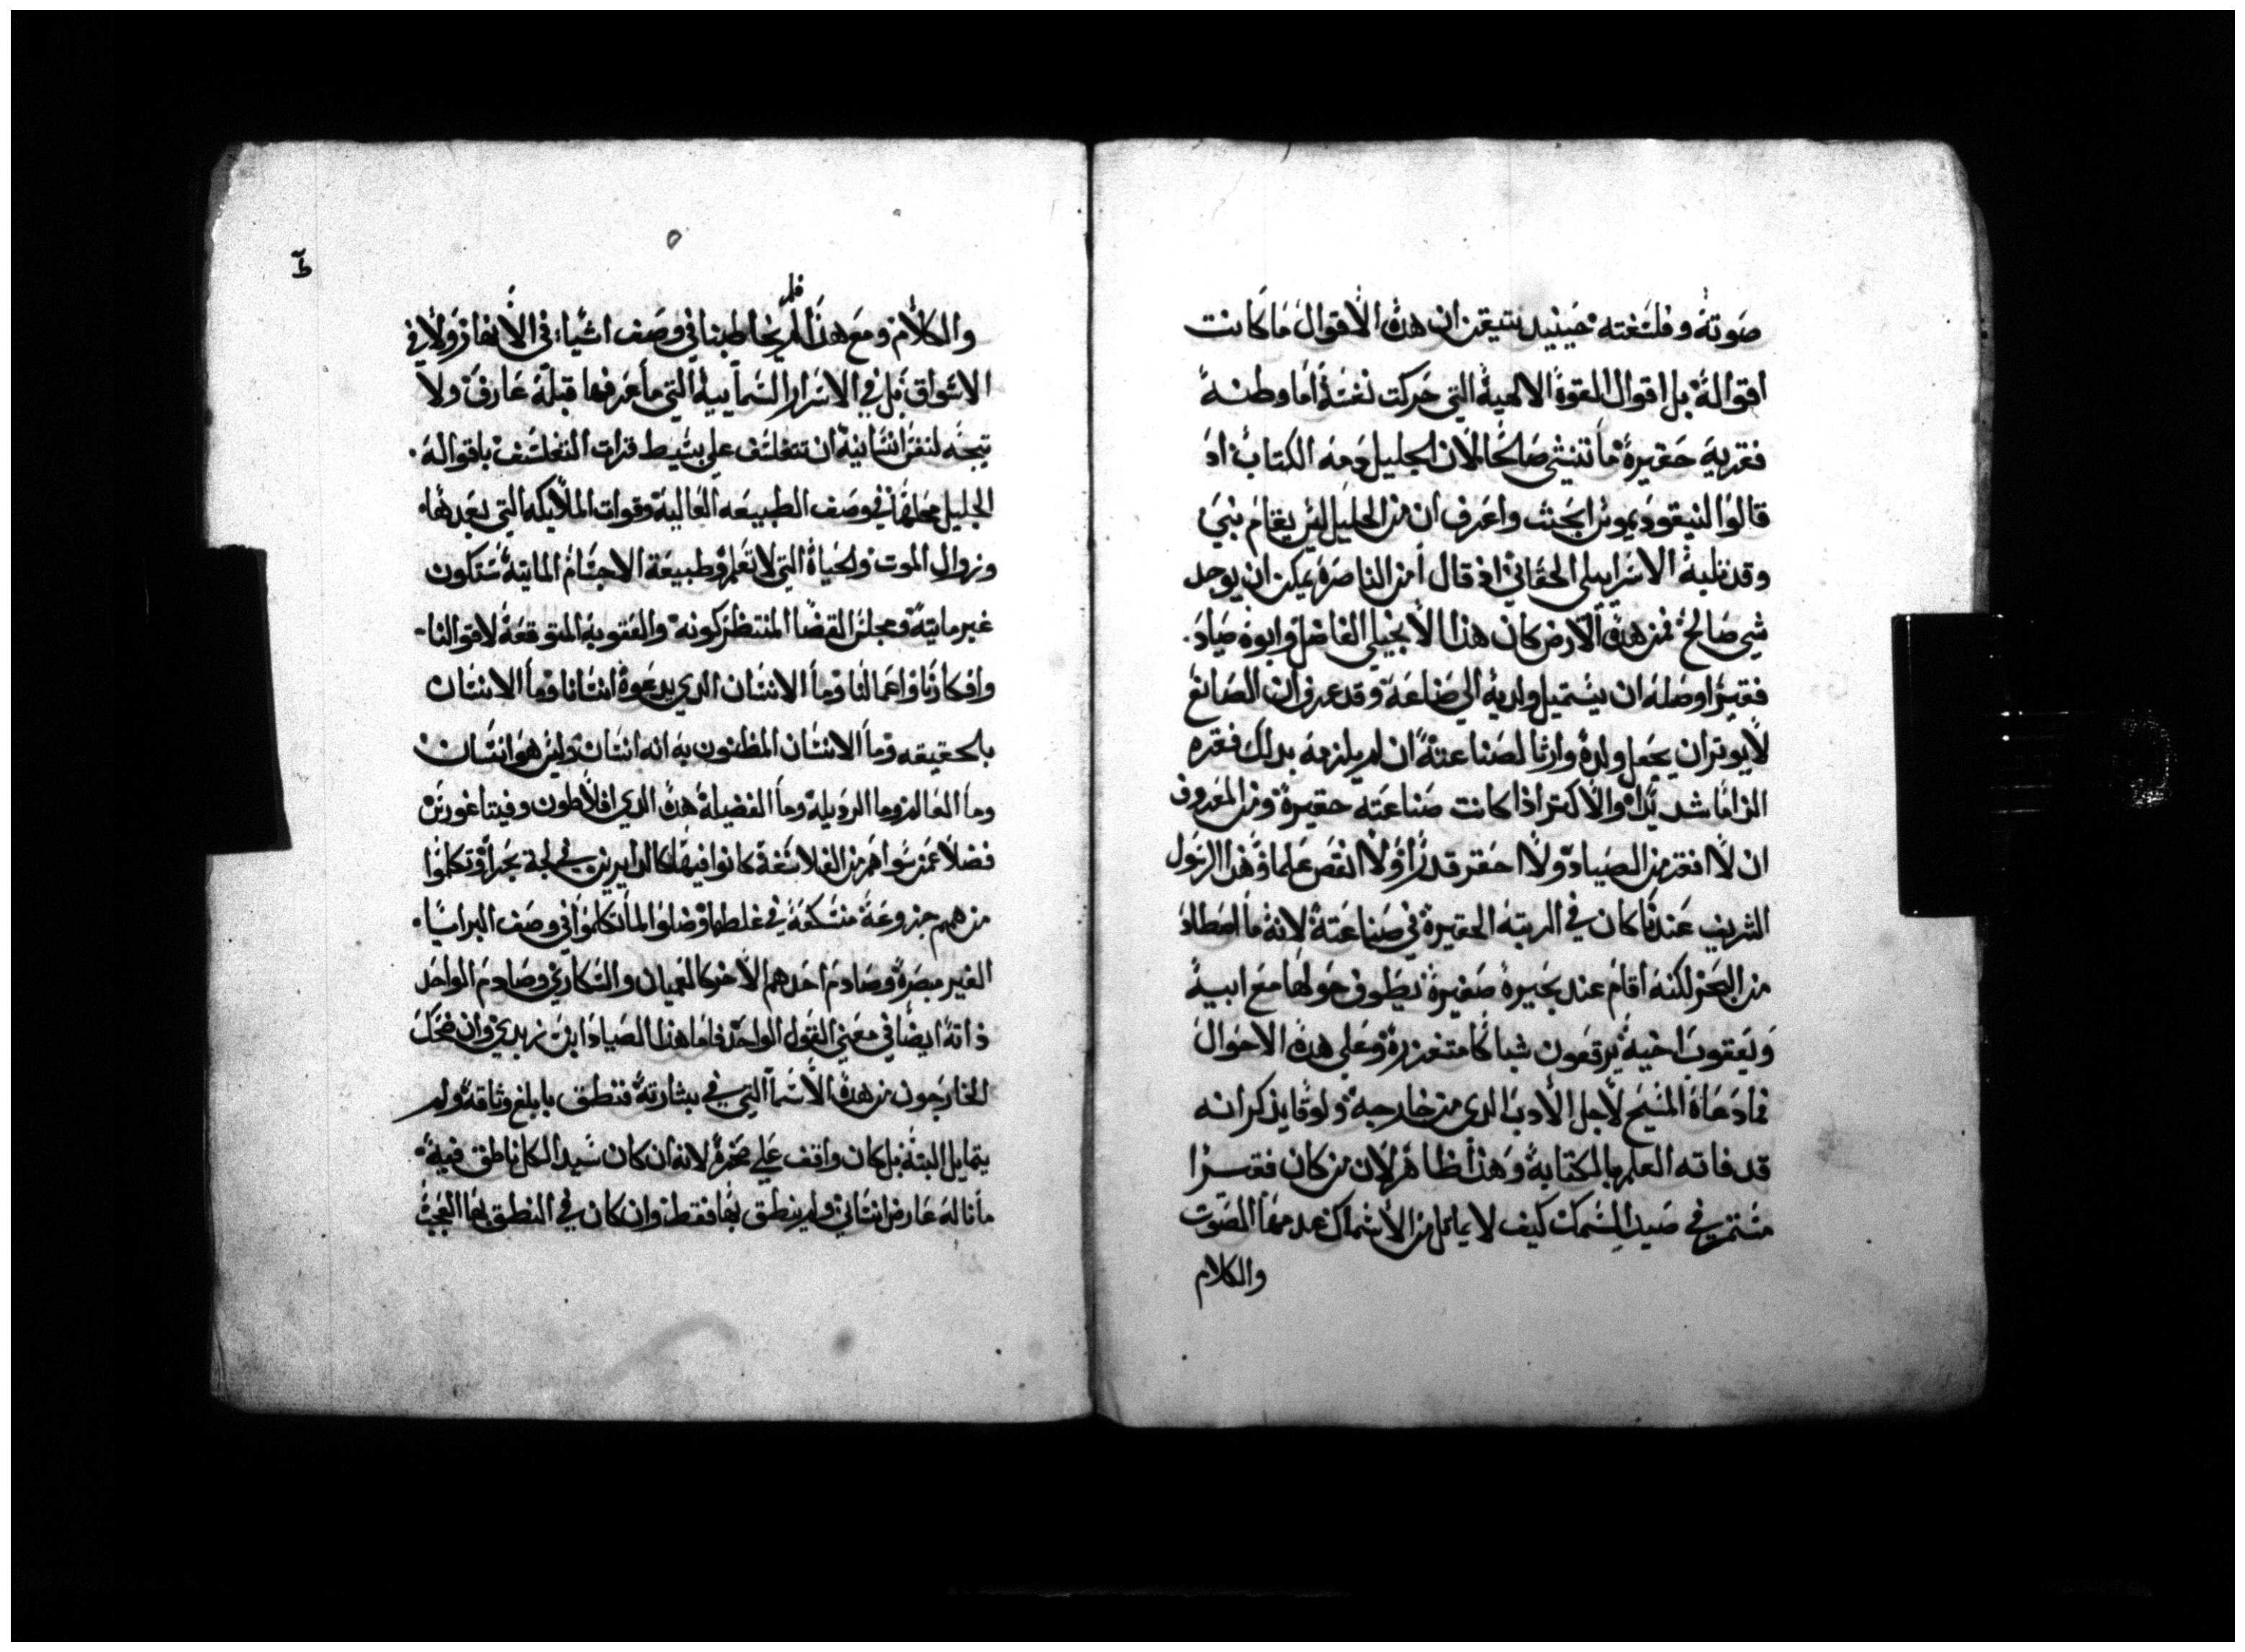 صوته وفلسفته حينيد يتيقن ان هده الاقوال ما كانت
اقواله بل اقوال القوة الالهية التي حركت نفسه اما وطنه
فقرية حقيرة ما تنشي صالحا لان الجليل دمه الكتاب اد
قالوا لنيقوديموس ابحث واعرف ان من الجليل ليس يقام نبي
وقد ثلبه الاسراييلي الحقاني اد قال امن الناصرة يمكن ان يوجد
شي صالح فمن هده الارض كان هدا الانجيلي الفاضل وابوه صياد
فقير اوصله ان يستميل ولديه الي صناعة وقد عرف ان الصانع
لا يوتر ان يجعل ولده وارثا لصناعته ان لم يلزمه بدلك فقره
الزاما شديدا والاكتر ادا كانت صناعته حقيرة ومن المعروف
ان لا افقر من الصياد ولا احقر قدرا ولا انقص علما وهدا الرسول
الشريف عندنا كان في الرتبه الحقيرة في صناعته لانه ما اصطاد
من البحر لكنه اقام عند بحيرة صغيرة يطوف حولها مع ابيه
ويعقوب اخيه يرقعون شباكا متغزرة وعلي هده الاحوال
فما دعاه المسيح لاجل الادب الدي من خارجه ولوقا يدكر انه
قد فاته العلم بالكتابة وهدا ظاهر لان من كان فقيرا
مستمر في صيد السمك كيف لا يماتل من الاسماك عدمها الصوت
والكلام
والكلام ومع هدا فلم يخاطبنا في وصف اشياء في الانهار ولا في
الاسواق بل في الاسرار السماييه التي ما عرفها قبله عارف ولا
يتجه لنفس انسانية ان تتفلسف علي بسيط قرات التفلسف باقواله
الجليل محلها في وصف الطبيعه العالية وقوات الملايكه التي بعدها
وزوال الموت والحياة التي لا تعلم وطبيعة الاجسام المايته ستكون
غير مايته ومجلس القضا المنتظر كونه والعقوبة المتوقعة لاقوالنا
وافكارنا واعمالنا وما الانسان الدي يدعوه انسانا وما الانسان
بالحقيقه وما الانسان المظنون به انه انسان وليس هو انسان
وما العالم وما الرديلة وما الفضيلة هده الدي افلاطون وفيتاغورس
فضلا عمن سواهم من الفلاسفة كانوا فيها كالدايرين في لجة بحر وتكلموا
منهم جزوعة منسكعة في غلطها وضلوا لما تكلموا في وصف البرايا
الغير مبصرة وصادم احدهم الاخر كالعميان والسكاري وصادم الواحد
داته ايضا في معني القول الواحد فاما هدا الصياد ابن زبدي وان ضحك
الخارجون من هده الاسما التي في بشارته فنطق بابلغ وثاقة ولم
يتمايل البتة بل كان واقف علي صخرة لانه ان كان سيد الكل ناطق فيه
ما ناله عارض انساني ولم ينطق بها فقط وان كان في النطق بها العجب